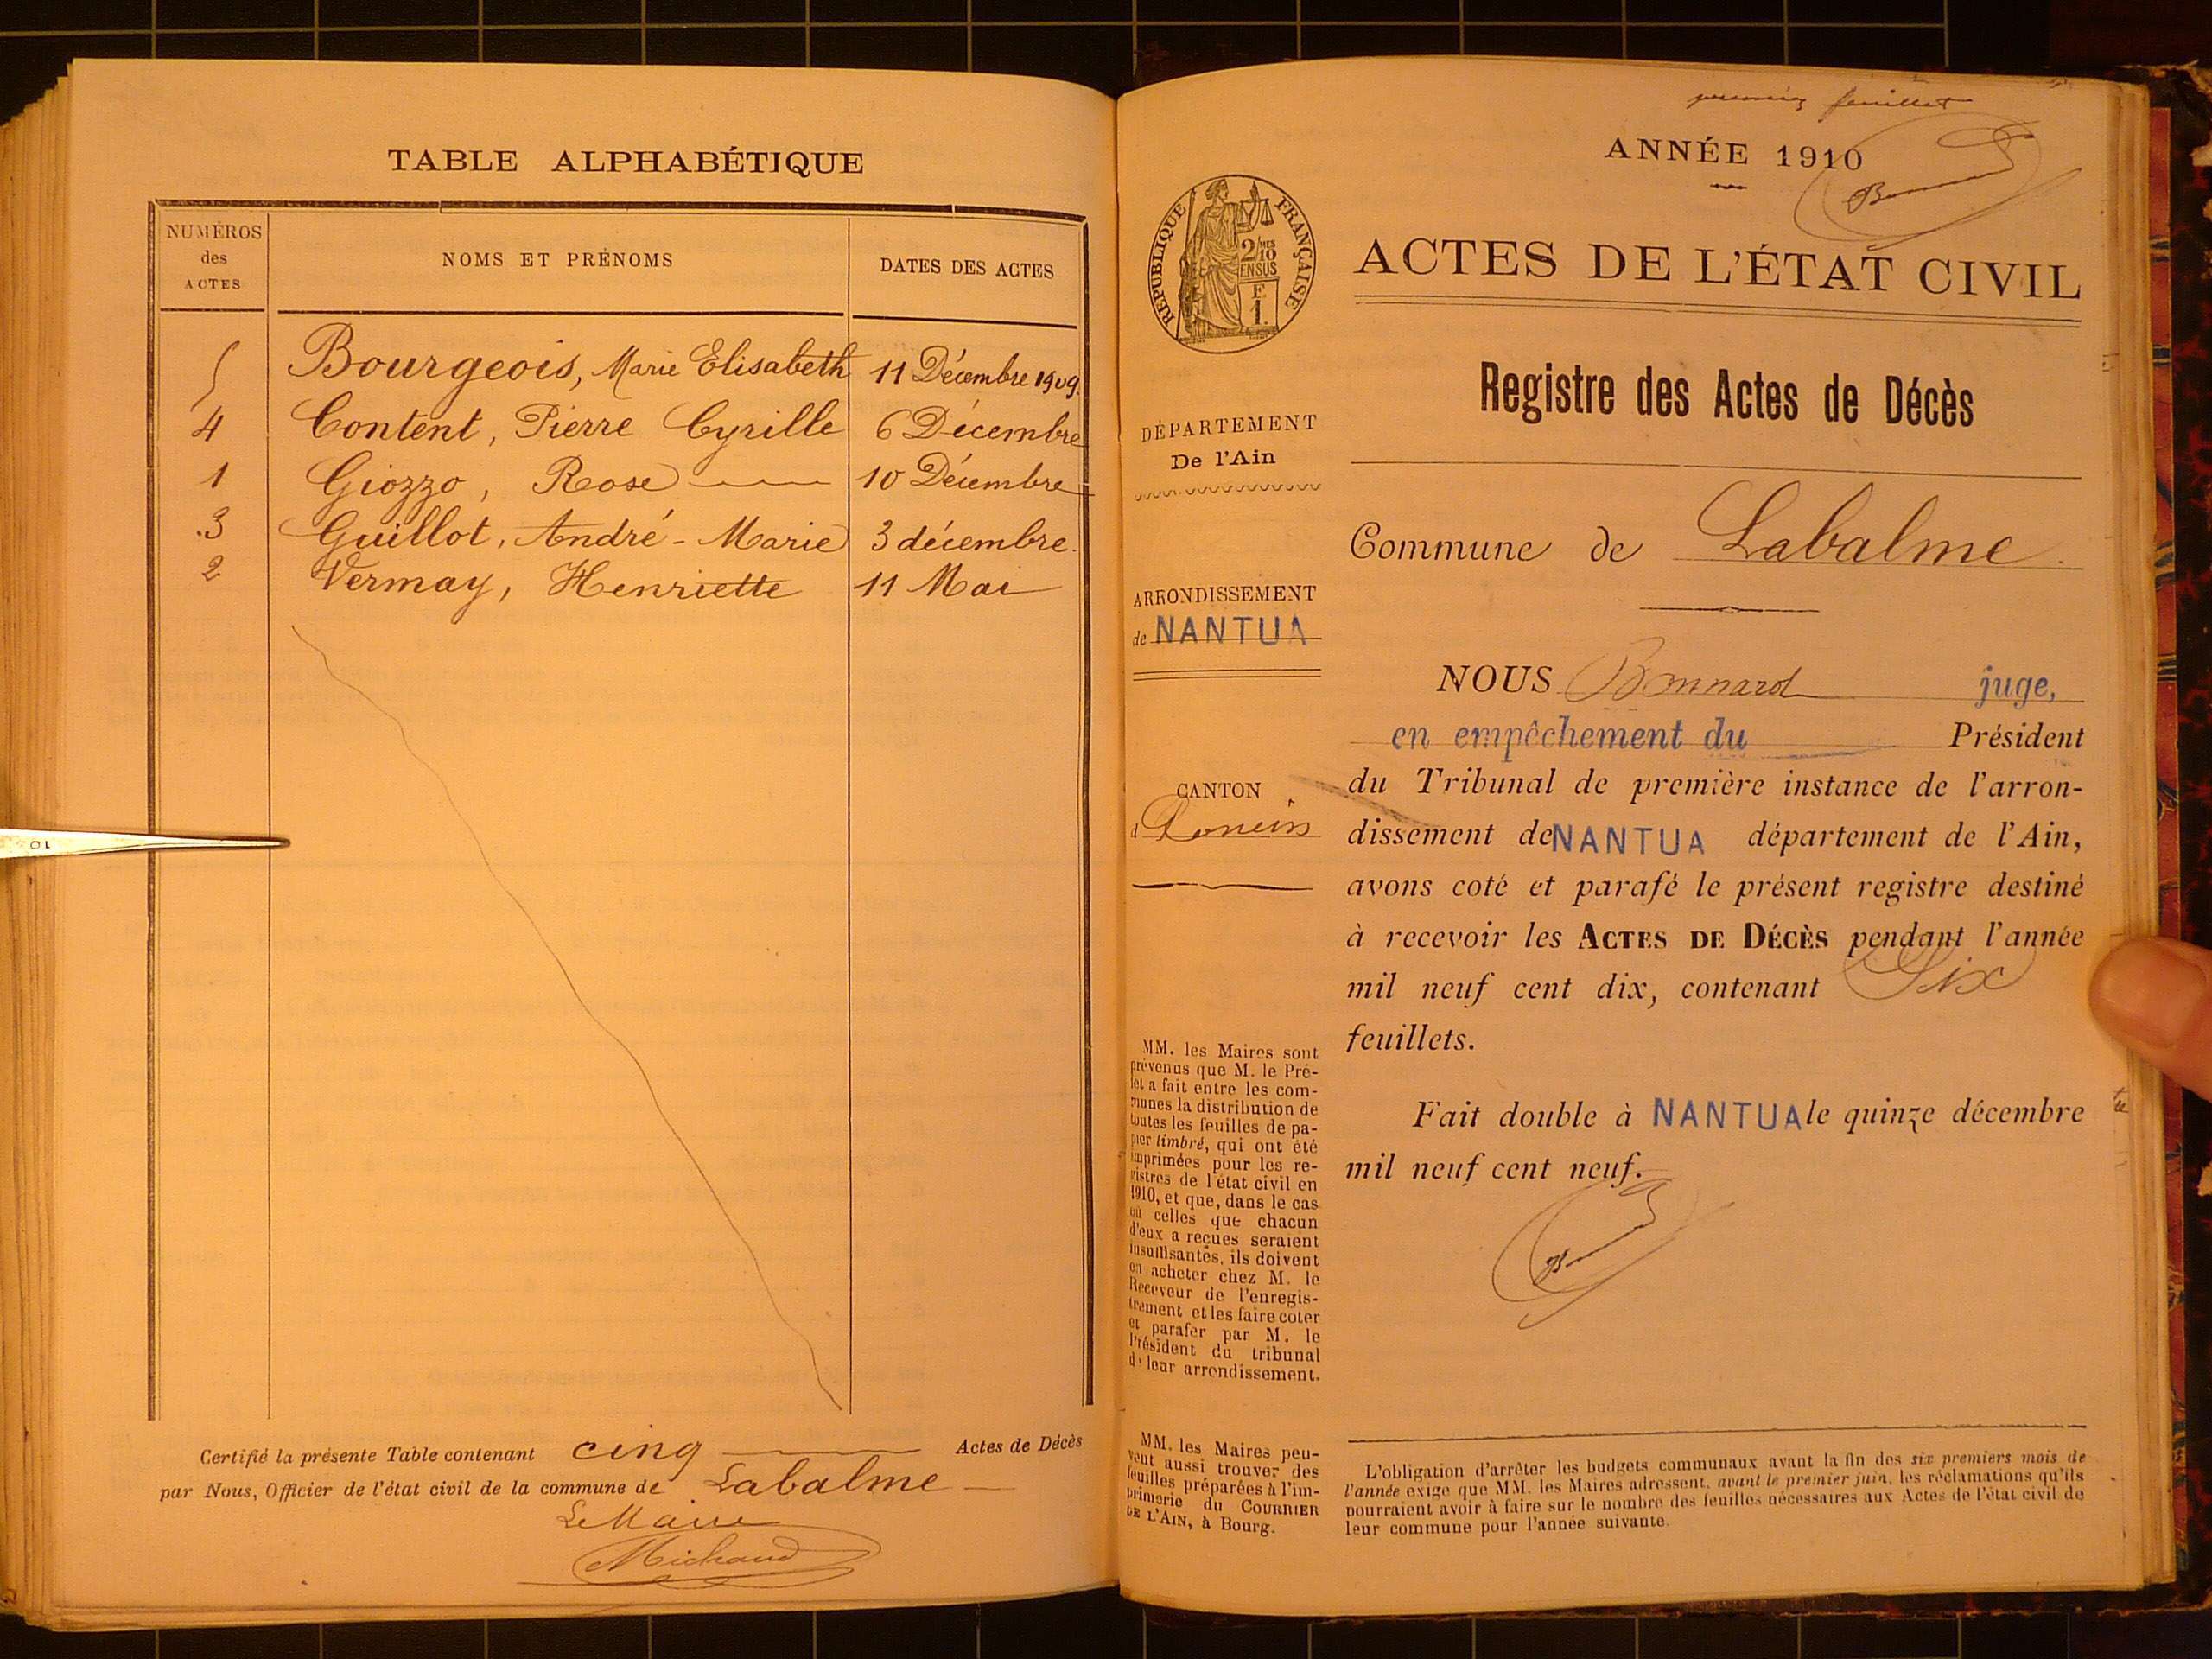 TABLE ALPHABÉTIQUE
NUMÉROS des ACTES
NOMS ET PRÉNOMS
DATES DES ACTES
5 Bourgeois, Marie Elisabeth 11 Décembre 1909.
4 Content, Pierre Cyrille 6 Décembre
1 Giozzo, Rose 10 Décembre
3 Guillot, André-Marie 3 décembre.
2 Vermay, Henriette 11 Mai
Certifié la présente Table contenant cinq Actes de Décès
par Nous, Officier de l'état civil de la commune de Labalme
Le Maire
Michaud
premier feuillet
ANNÉE 1910
RÉPUBLIQUE FRANÇAISE
2/10 MES
EN SUS
F.
1.
ACTES DE L'ÉTAT CIVIL
Registre des Actes de Décès
DÉPARTEMENT
De l'Ain
Commune de Labalme
ARRONDISSEMENT
de NANTUA
NOUS Bonnard juge,
en empêchement du Président
CANTON
d Poncin
du Tribunal de première instance de l'arron-
dissement de NANTUA département de l'Ain,
avons coté et parafé le présent registre destiné
à recevoir les ACTES DE DÉCÈS pendant l'année
mil neuf cent dix, contenant Six
feuillets.
Fait double à NANTUA le quinze décembre
mil neuf cent neuf.
MM. les Maires sont
prévenus que M. le Pré-
fet a fait entre les com-
munes la distribution de
toutes les feuilles de pa-
pier timbré, qui ont été
imprimées pour les re-
gistres de l'état civil en
1910, et que, dans le cas
où celles que chacun
d'eux a reçues seraient
insuffisantes, ils doivent
en acheter chez M. le
Receveur de l'enregis-
trement et les faire coter
et parafer par M. le
Président du tribunal
de leur arrondissement.
MM. les Maires peu-
vent aussi trouver des
feuilles préparées à l'im-
primerie du COURRIER
DE L'AIN, à Bourg.
L'obligation d'arrêter les budgets communaux avant la fin des six premiers mois de
l'année exige que MM. les Maires adressent, avant le premier juin, les réclamations qu'ils
pourraient avoir à faire sur le nombre des feuilles nécessaires aux Actes de l'état civil de
leur commune pour l'année suivante.
10